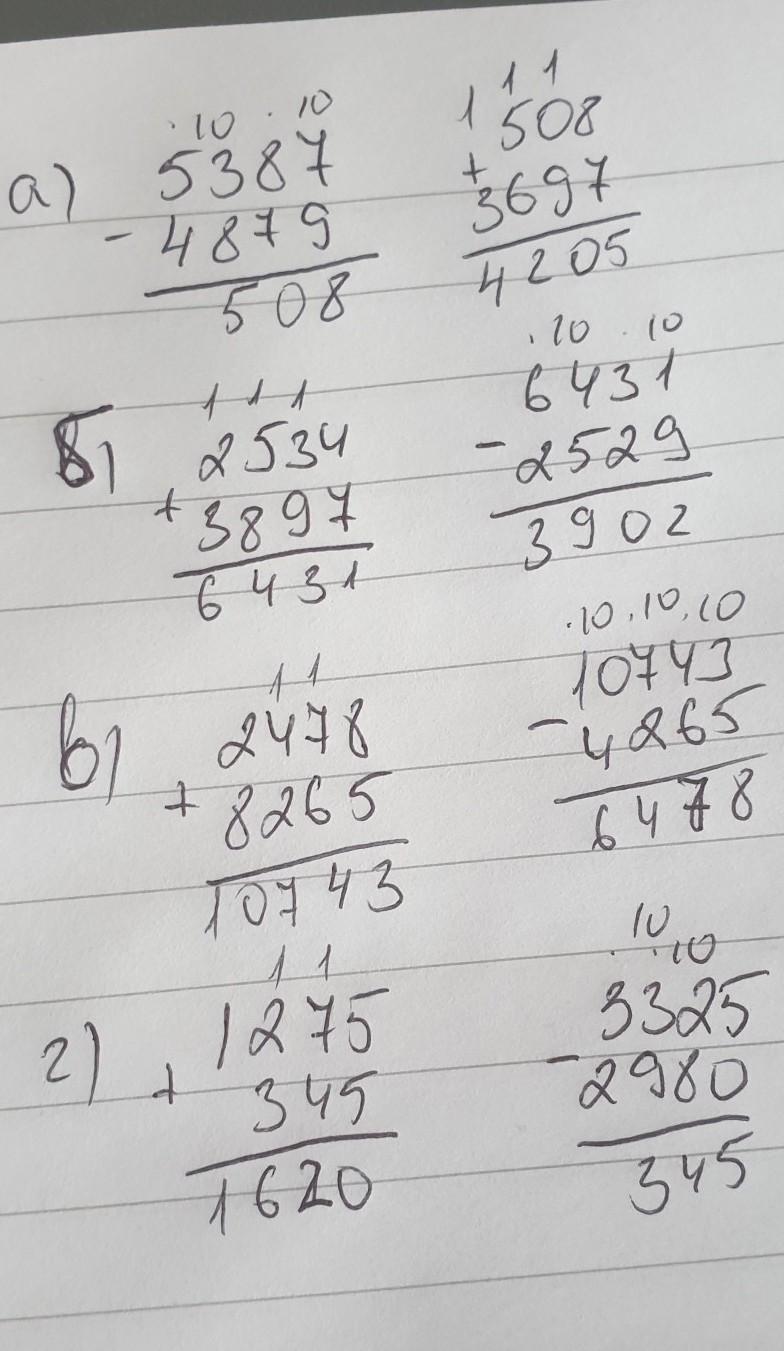 . 10 . 10
5387
а) - 4879
508
1 1 1
508
+ 3697
4205
1 1 1
2534
б) + 3897
6431
. 10 . 10
6431
- 2529
3902
1 1
2478
в) + 8265
10743
. 10 . 10 . 10
10743
- 4265
6478
1 1
1275
г) + 345
1620
. 10
. 10
3325
- 2980
345